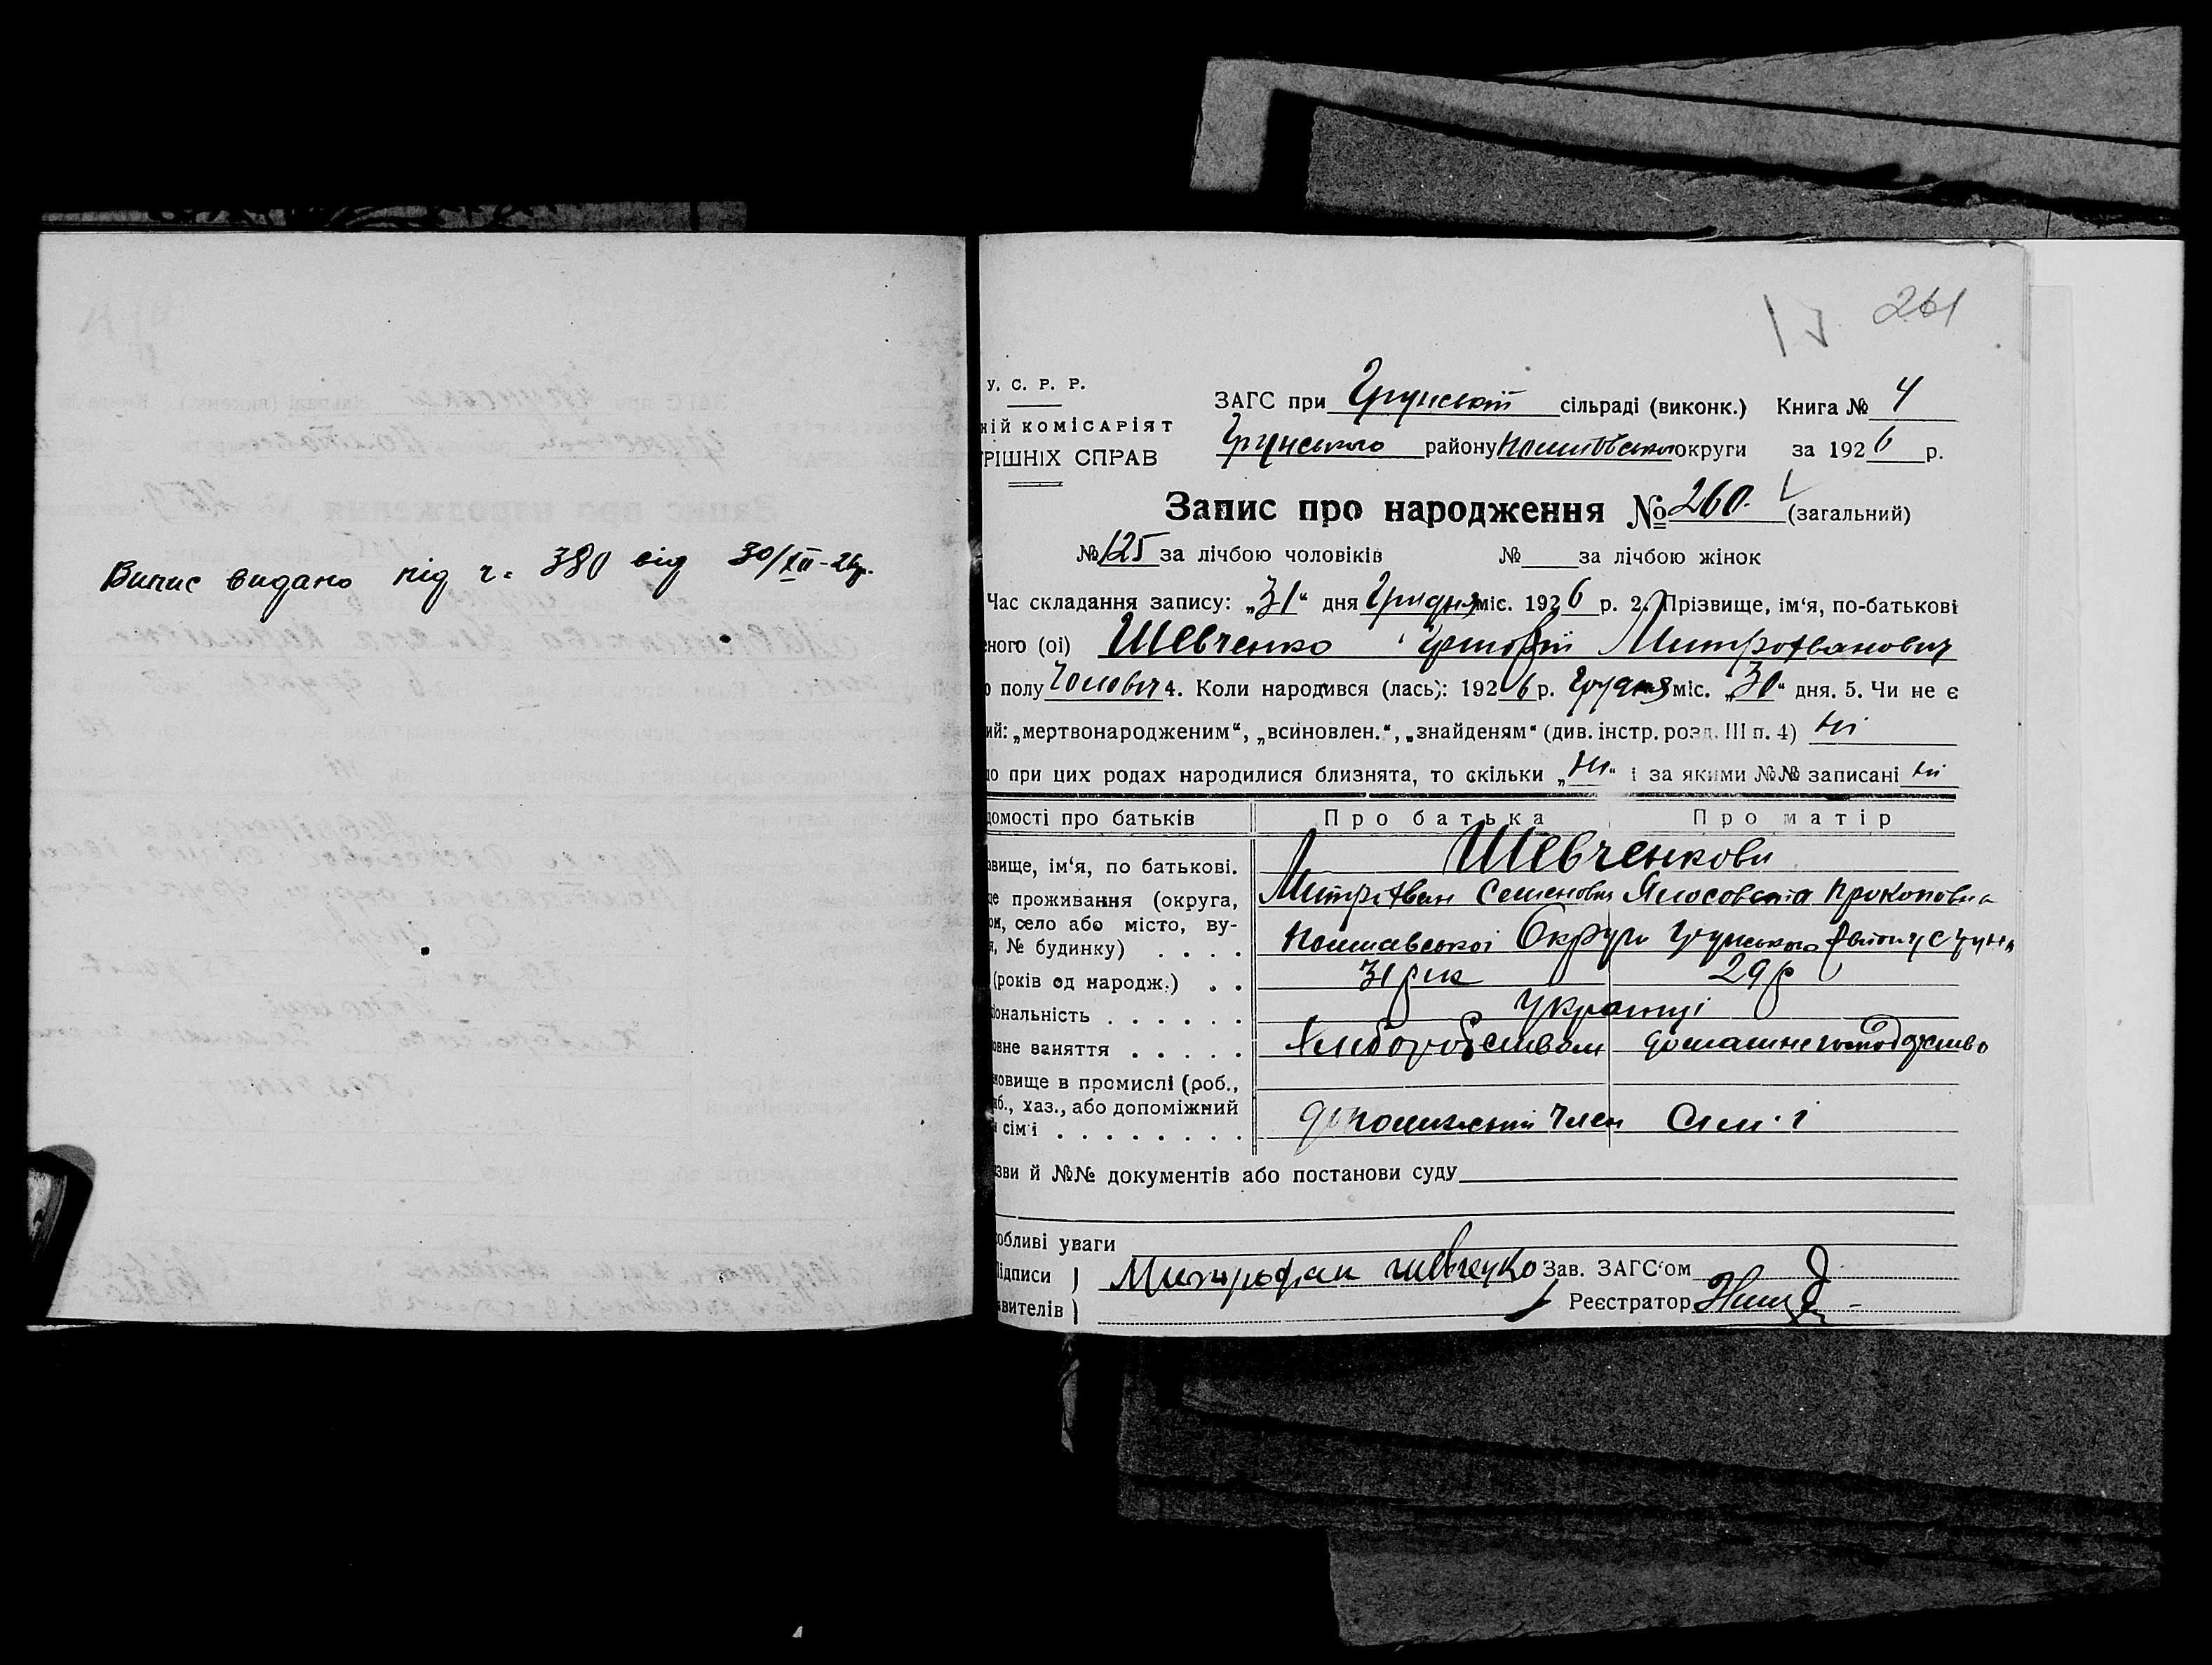 Випис видано під ч. 380 від 30/XII-26р.
261
У. С. Р. Р.
ЗАГС при Грунській сільраді (виконк.) Книга № 4
ній комісаріят
Грунського району Полтавської округи за 1926 р.
РІШНІХ СПРАВ
Запис про народження № 260. (загальний)
№ 125 за лічбою чоловіків № за лічбою жінок
Час складання запису: „31“ дня Грудня міс. 1926 р. 2. Прізвище, ім‘я, по-батькові
ного (ої) Шевченко Григорій Митрофванович
полу Чоловіч 4. Коли народився (лась): 1926 р. Грудня міс. „30“ дня. 5. Чи не є
ий: „мертвонародженим“, „всиновлен.“, „знайденям“ (див. інстр. розд. III п. 4) ні
що при цих родах народилися близнята, то скільки „ні“ і за якими №№ записані ні
домості про батьків Про батька Про матір
звище, ім‘я, по батькові. Шевченкови
це проживання (округа, Митрофван Семенович Прокоповна
он, село або місто, ву-
, № будинку) . . . . Полтавської Округи Грунського
(років од народж.) . . 31 рік 29 р
іональність . . . . . . Українці
овне заняття . . . . . Хліборобством домашнє господарство
новище в промислі (роб.,
б., хаз., або допоміжний
сім‘ї . . . . . . . . допоміжний член сім‘ї
зви й №№ документів або постанови суду
обливі уваги
ідписи ) Митрофан Шевченко Зав. ЗАГС‘ом
явителів ) Реєстратор